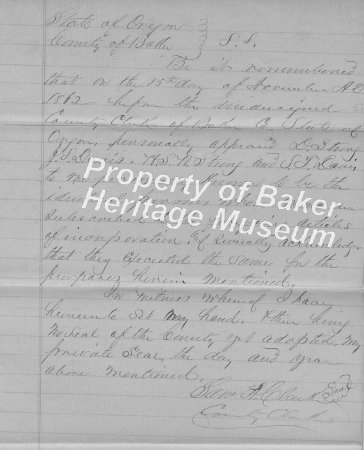 State of Oregon
County of Baker } S.S.
Be it remembered
that on the 15th day of November A.D.
1862 before the undersigned
County Clerk of Baker Co State of
Oregon, personally appeared
J.S. W.S. and S.F.
to me to be the
Property of Baker
Heritage Museum
subscribed
of incorporation & severally acknowledge
that they executed the same for the
purposes herein mentioned.
In witness whereof I have
hereunto set my hand. & there being
no seal of the County yet adopted. My
private Seal the day and year
above mentioned.
Clark Seal
County Clerk